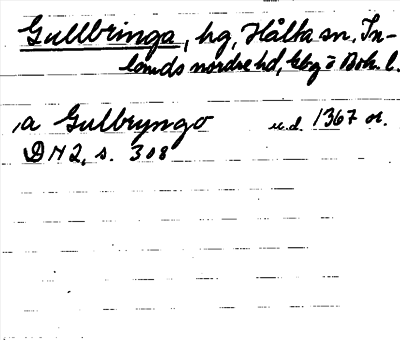 Gullbringa, hg, Hålta sn, In-
lands nordre hd, Gbg o Boh. l.
,a Gulbryngo u.d. 1367 or.
DN 2, s. 308